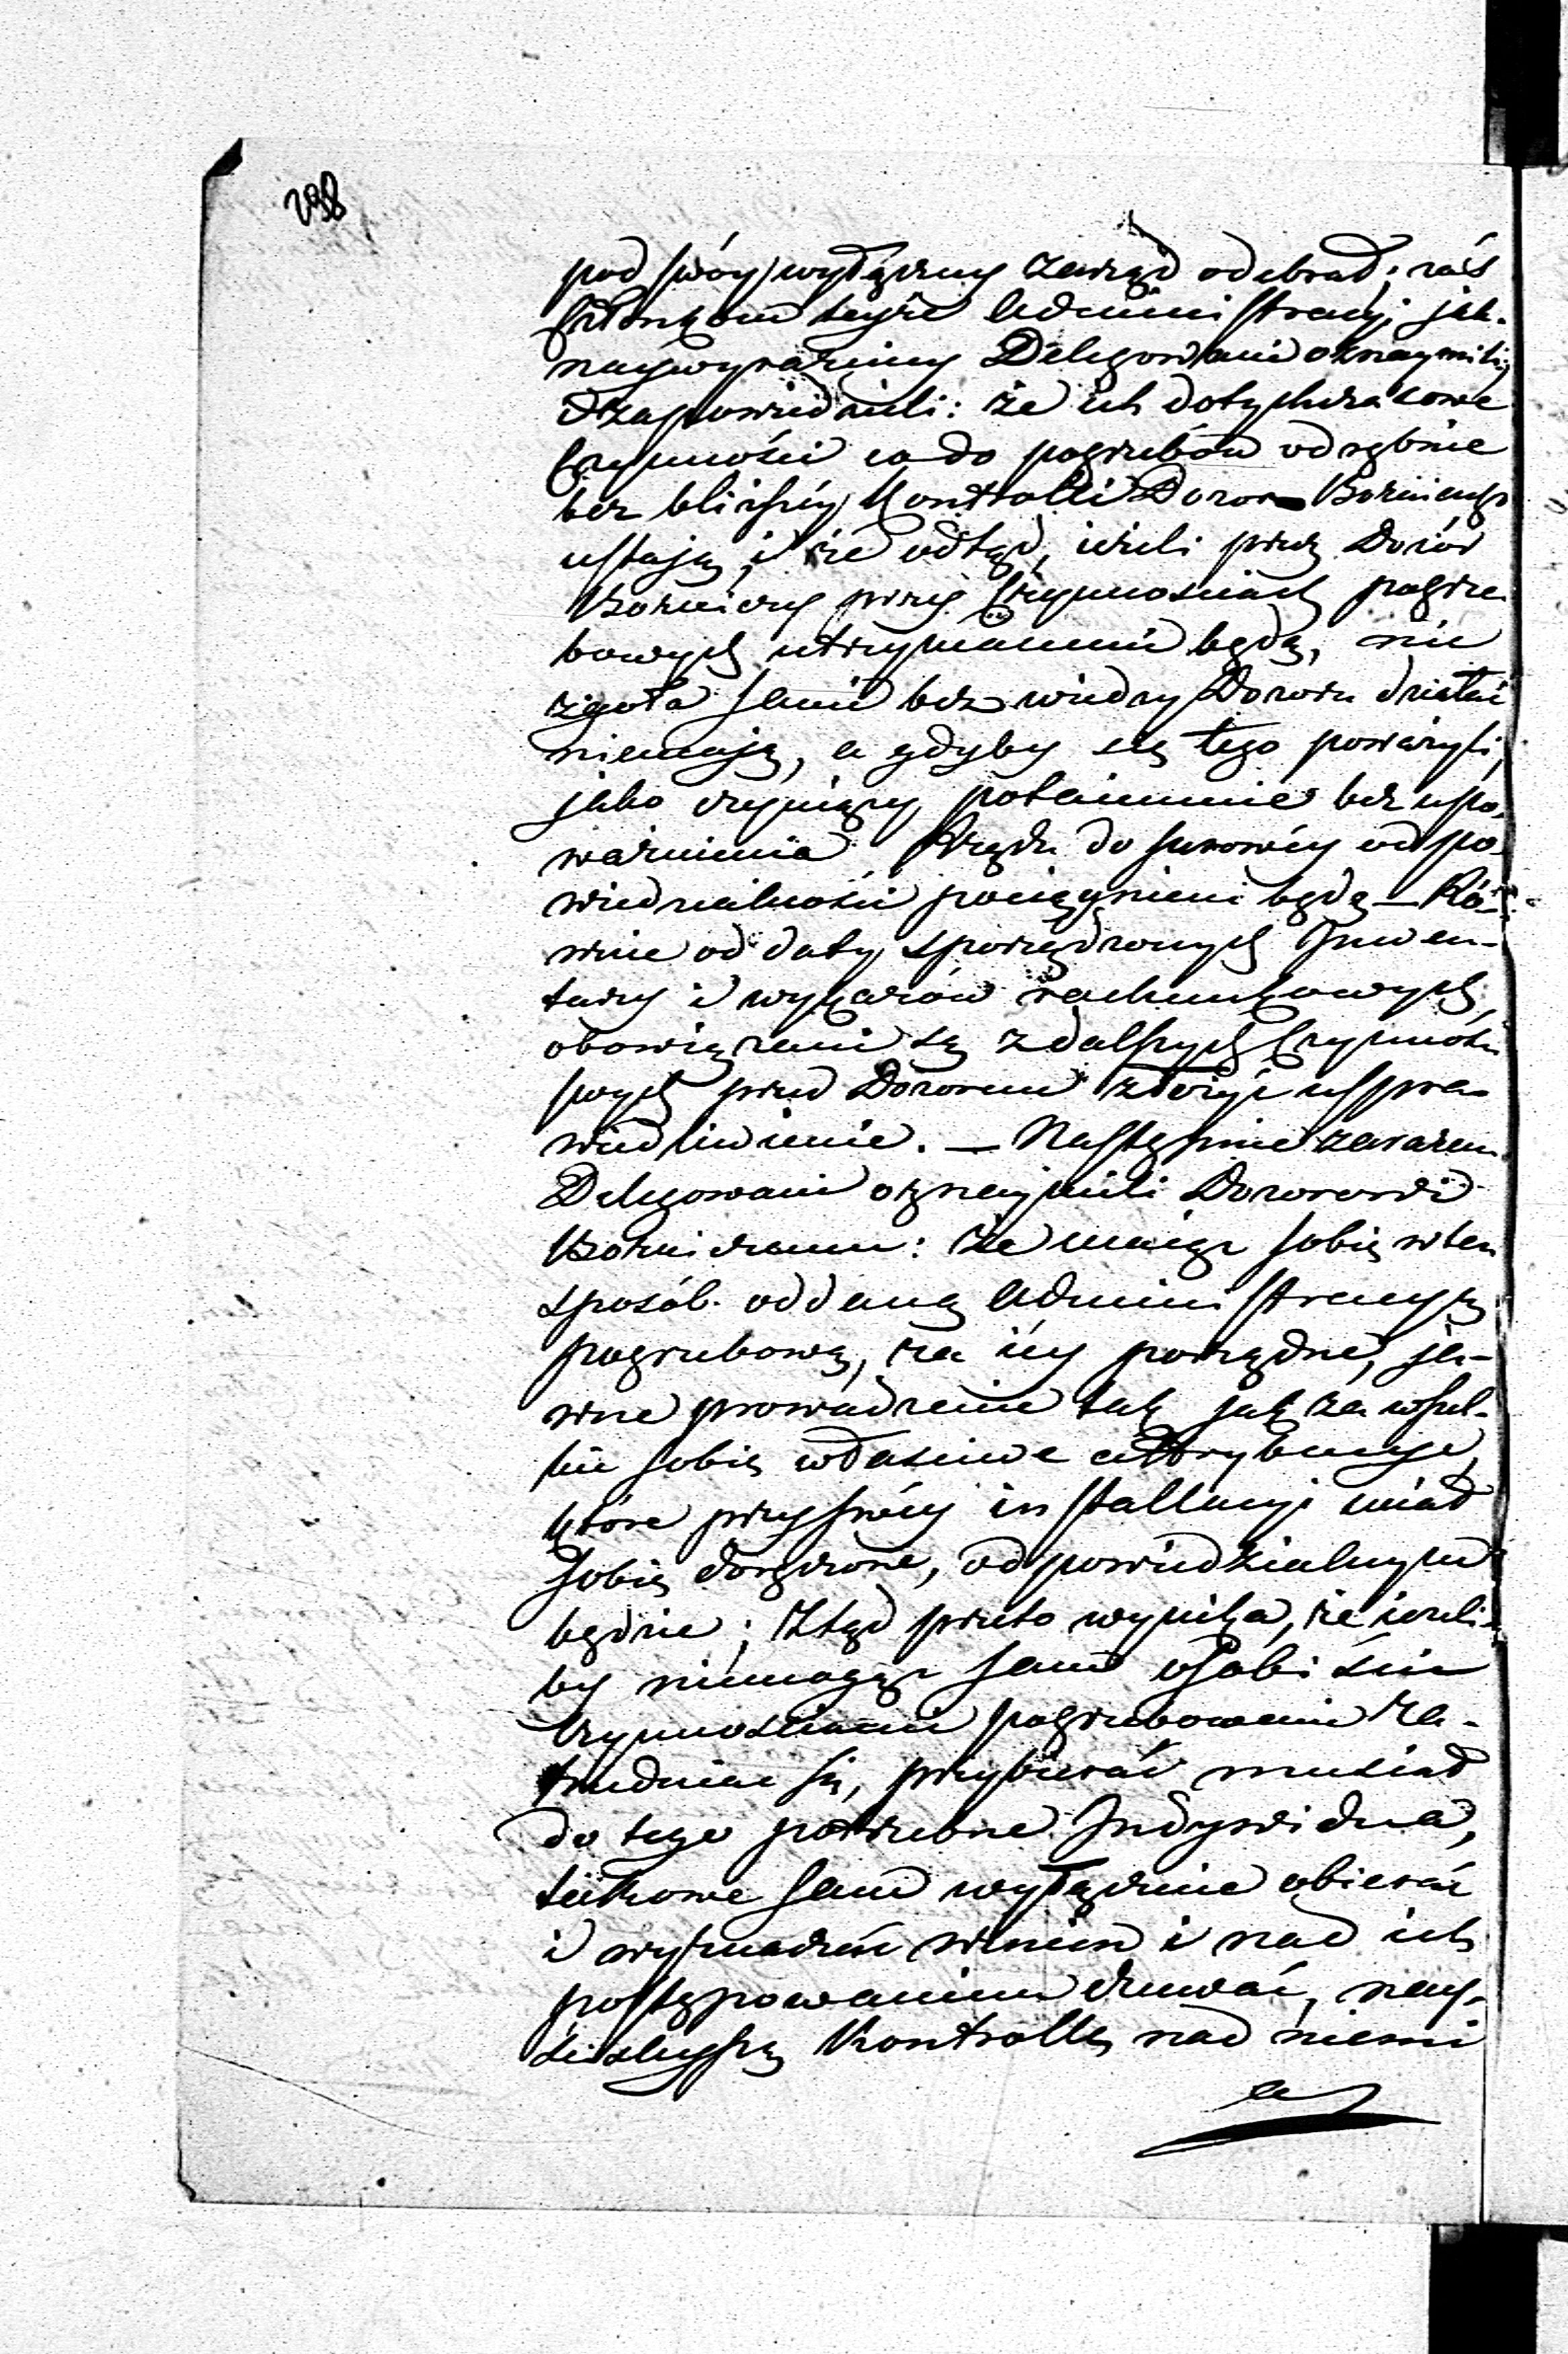 298
pod swóy wyłączny zarząd odebrał; zaś
Członkom teyże Administracyi jak-
naywyraźniey Delegowani oznaymili
i zapowiedzieli: że ich dotychczasowe
Czynności co do pogrzebów odrębnie
bez bliższéy Kontrolli Dozoru Bożniczego
ustają, i że odtąd, ieżeli przez Dozór
Bożniczy przy Czynnościach pogrze
bowych utrzymanemi będą, nic
zgoła sami bez wiedzy Dozoru działać
niemają, a gdyby się tego poważyli,
jako czyniący potaiemnie bez upo-
ważnienia Rządu do surowéy odpo
wiedzialności pociągnieni będą — Ró-
wnie od daty sporządzonych Inwen-
tarzy i wykazów rachunkowych,
obowiązani są z dalszych Czynności
swych przed Dozorem złożyć usspra-
wiedliwienie. — Następnie zarazem
Delegowani oznajmili Dozorowi
Bożniczemu: że maiąc sobie w ten
sposób oddaną Administracyą
pogrzebową, za iéy porządne, ja-
wne prowadzenie tak jak za wszel-
kie sobie właściwe attrybucye,
które przy swéy installacyi miał
sobie doręczone, odpowiedzialnym
będzie; Ztąd przeto wynika, że ieżeli-
by niemogąc sam osobiście
Czynnościami pogrzebowemi za-
trudniać się, przybierać musiał
do tego potrzebne Indywidua,
takowe sam wyłącznie obierać
i wyznaczać winien i nad ich
postępowaniem czuwać, nay-
ściślejszą Kontrollę nad niemi